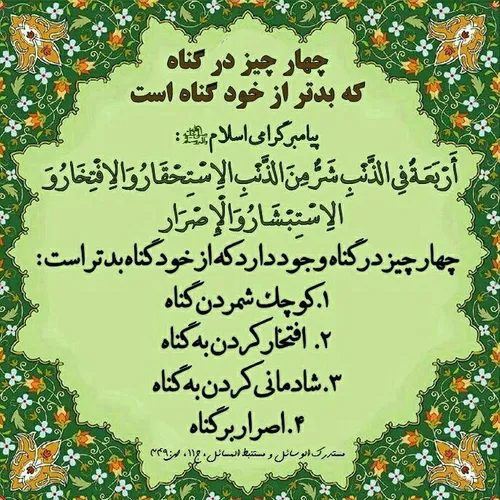 چهار چیز در گناه
که بدتر از خود گناه است
پیامبر گرامی اسلام ﷺ :
أَرْبَعَةٌ فِي الذَّنْبِ شَرٌّ مِنَ الذَّنْبِ الِاسْتِحْقَارُ وَ الِافْتِخَارُ وَ
الِاسْتِبْشَارُ وَ الْإِصْرَار
چهار چیز در گناه وجود دارد که از خود گناه بدتر است :
۱. کوچک شمردن گناه
۲. افتخار کردن به گناه
۳. شادمانی کردن به گناه
۴. اصرار بر گناه
مستدرک الوسائل و مستنبط المسائل، ج۱۱، ص۳۴۹